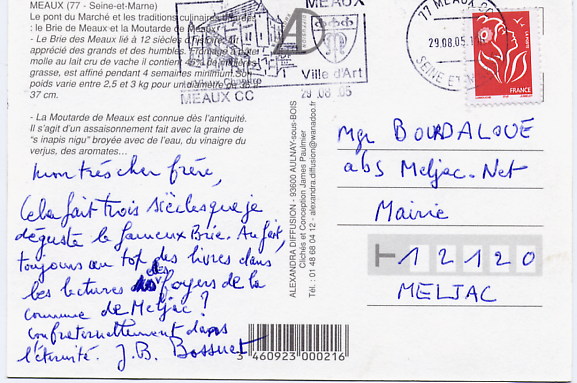 MEAUX (77 - Seine-et-Marne)
Le pont du Marché et les traditions culinaires
: le Brie de Meaux et la Moutarde de Meaux
- Le Brie de Meaux lié à 12 siècles d'histoire
apprécié des grands et des humbles. Fromage à pâte
molle au lait cru de vache il contient 45% de matière
grasse, est affiné pendant 4 semaines minimum. Son
poids varie entre 2,5 et 3 kg pour un diamètre de 36 à
37 cm.
- La Moutarde de Meaux est connue dès l'antiquité.
Il s'agit d'un assaisonnement fait avec la graine de
"s inapis nigu" broyée avec de l'eau, du vinaigre du
verjus, des aromates...
MEAUX
Vieux Chapitre
Ville d'Art
MEAUX CC
29 .08 .05
77 MEAUX CC
29.08.05
SEINE ET
LA POSTE
FRANCE
AD
mon très cher frère,
Cela fait trois siècles que je
déguste le fameux Brie. Au fait,
toujours au top des livres dans
les lectures des foyers de la
commune de Meljac ?
confraternellement dans
l'éternité. J.B. Bossuet
ALEXANDRA DIFFUSION - 93600 AULNAY-sous-BOIS
Clichés et Conception James Paulmier
Tél. : 01 48 68 04 12 - alexandra.diffusion@wanadoo.fr
3 460923 000216
Mgr BOURDALOUE
abs Meljac.Net
Mairie
12120
MELJAC